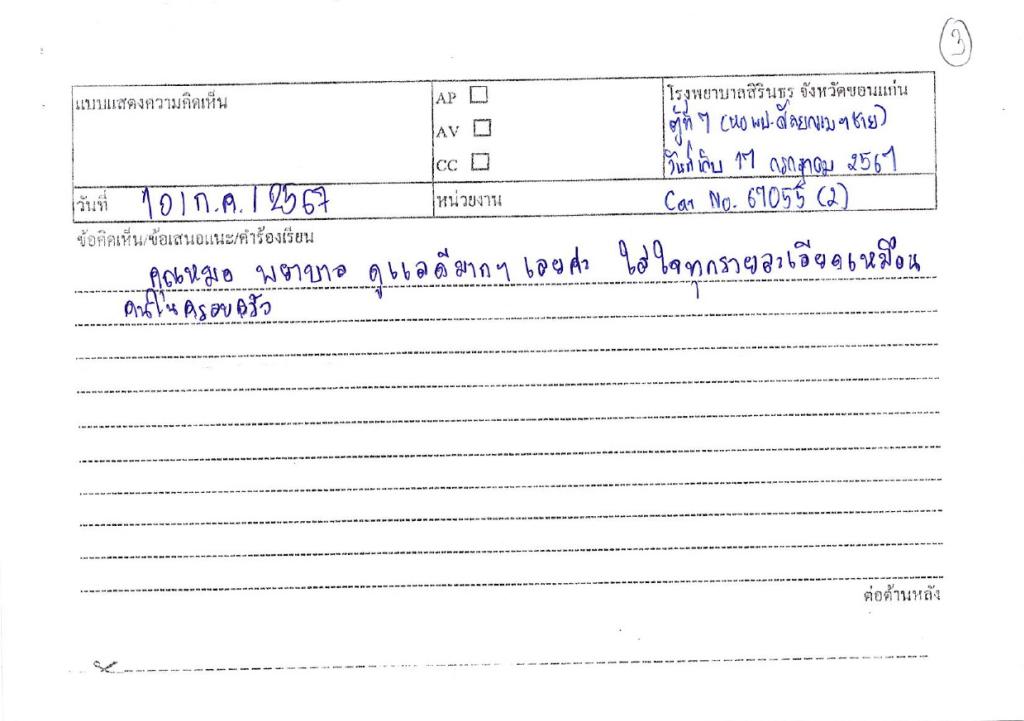 3
แบบแสดงความคิดเห็น
AP
AV
CC
โรงพยาบาลสิรินธร จังหวัดขอนแก่น
ตู้ที่ 7 (หอผป.ศัลยกรรมฯชาย)
วันที่เก็บ 17 กรกฎาคม 2567
วันที่ 10/ก.ค./2567
หน่วยงาน
Car No. 67055 (2)
ข้อคิดเห็น/ข้อเสนอแนะ/คำร้องเรียน
คุณหมอ พยาบาล ดูแลดีมากๆ เลยค่ะ ใส่ใจทุกรายละเอียดเหมือน
คนในครอบครัว
ต่อด้านหลัง